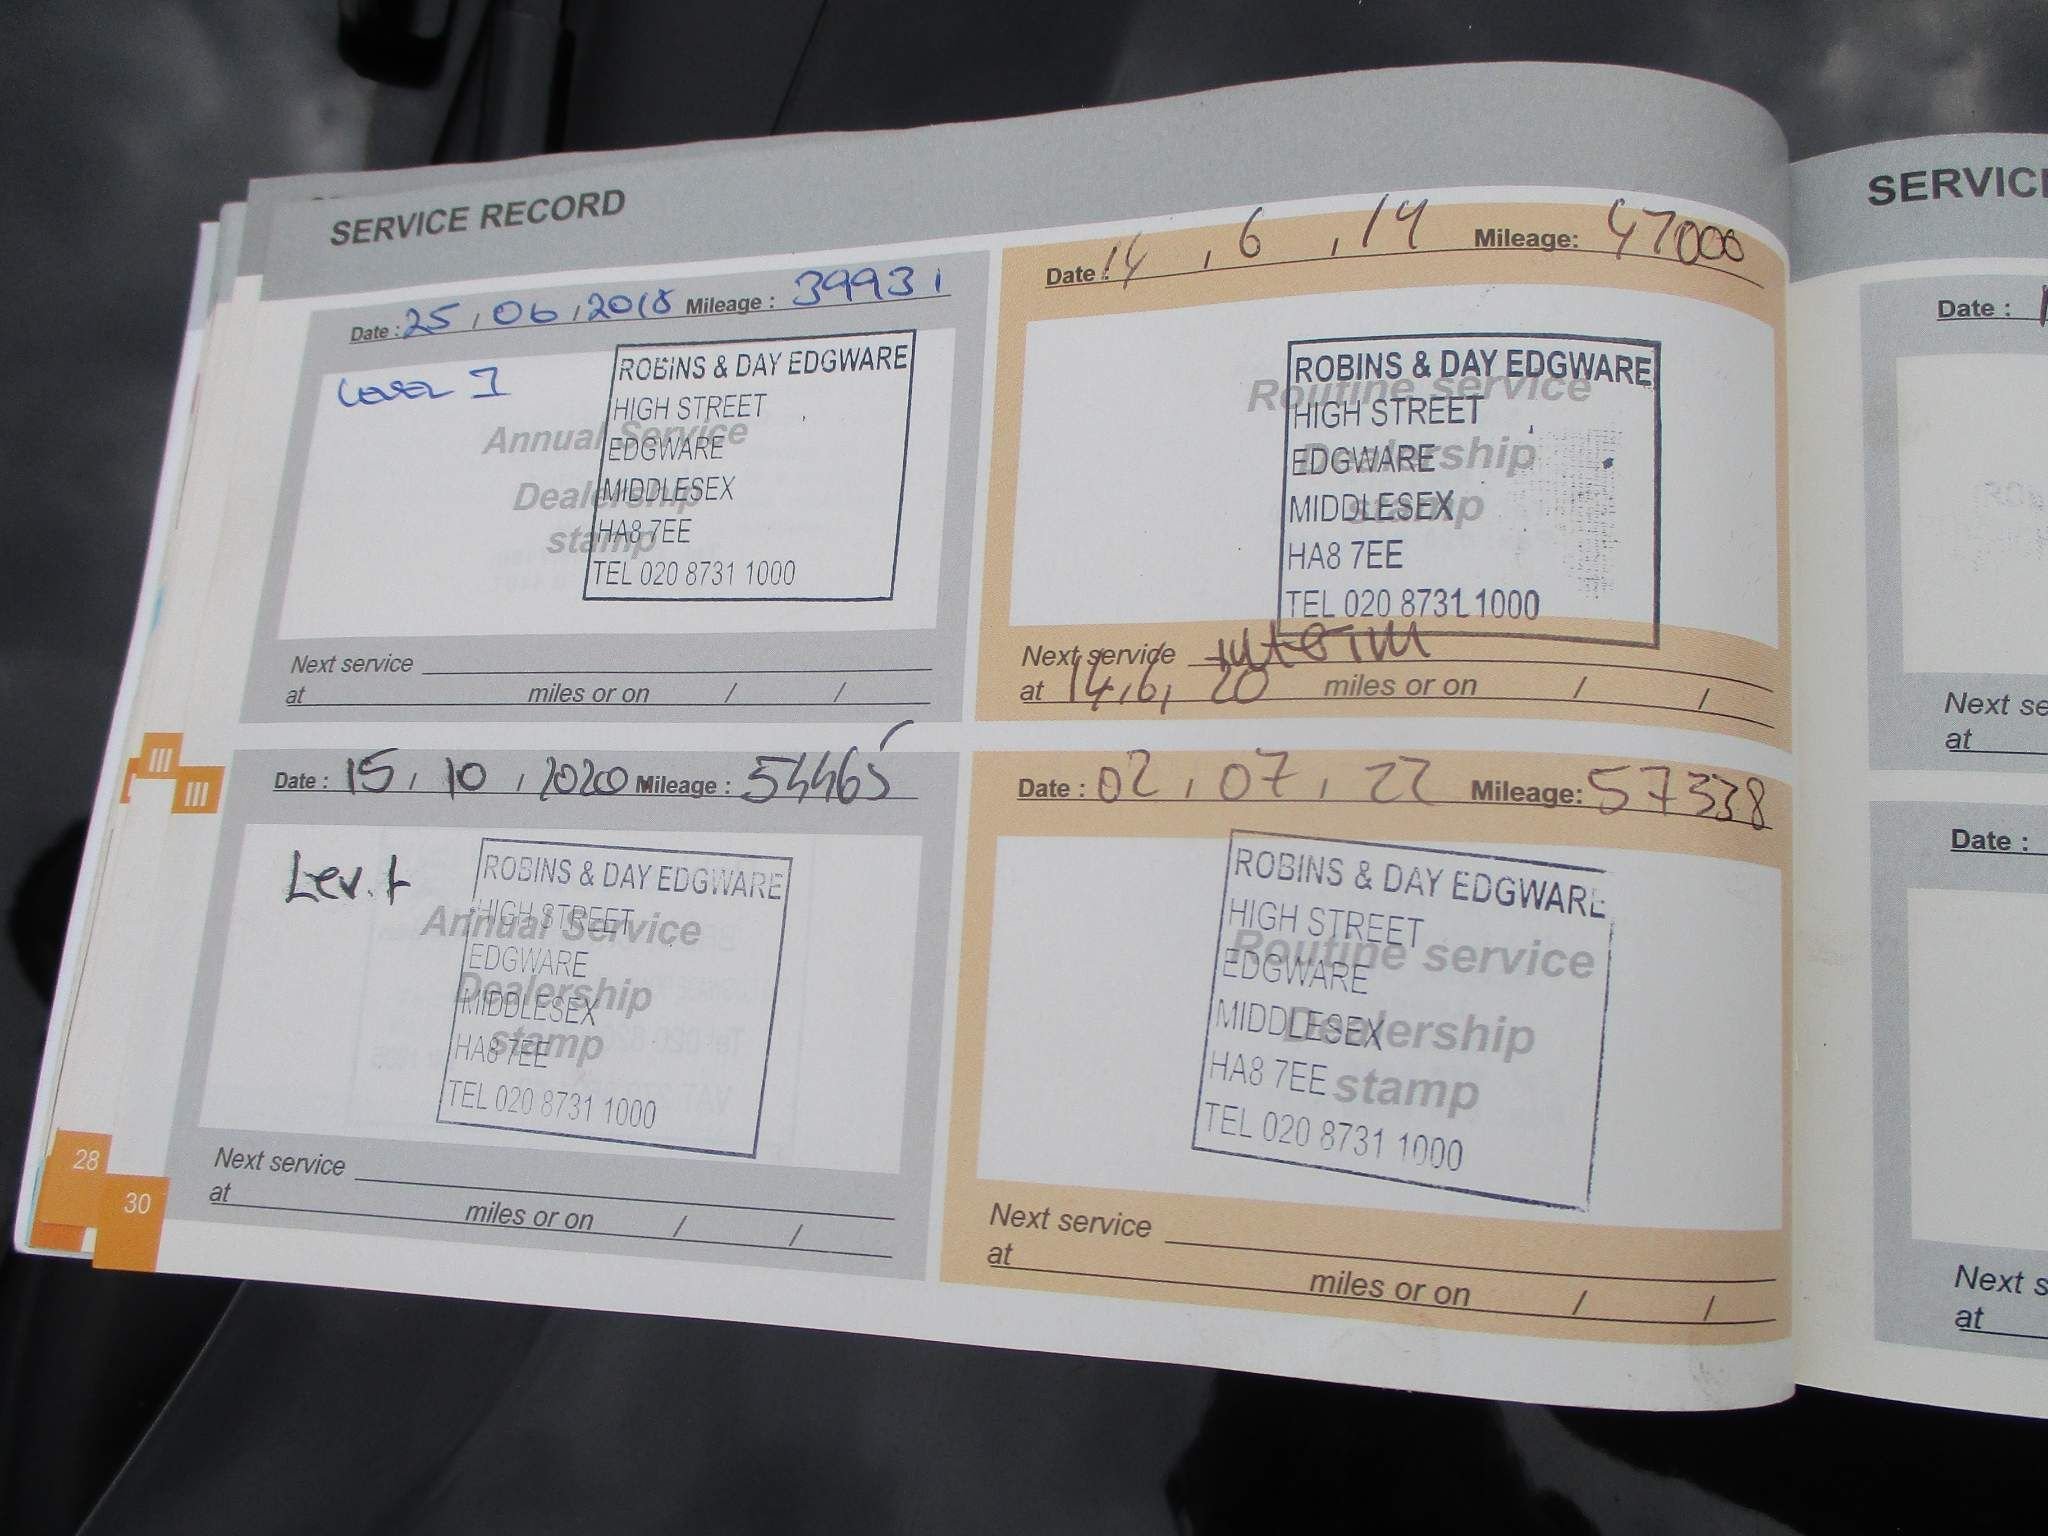 SERVICE RECORD
Date : 25 , 06 , 2018 Mileage : 39931
Level 1
Annual Service
Dealership
stamp
ROBINS & DAY EDGWARE
HIGH STREET
EDGWARE
MIDDLESEX
HA8 7EE
TEL 020 8731 1000
Next service
at miles or on / /
Date : 14 , 6 , 19 Mileage: 47000
Routine service
Dealership
stamp
ROBINS & DAY EDGWARE
HIGH STREET
EDGWARE
MIDDLESEX
HA8 7EE
TEL 020 8731 1000
Next service Interim
at 14,6, 20 miles or on / /
Date : 15 , 10 , 2020 Mileage : 54465
Lev. 1
Annual Service
Dealership
stamp
ROBINS & DAY EDGWARE
HIGH STREET
EDGWARE
MIDDLESEX
HA8 7EE
TEL 020 8731 1000
Next service
at miles or on / /
Date : 02 , 07 , 22 Mileage: 57338
Routine service
Dealership
stamp
ROBINS & DAY EDGWARE
HIGH STREET
EDGWARE
MIDDLESEX
HA8 7EE
TEL 020 8731 1000
Next service
at miles or on / /
III
III
28
30
Date :
Next
at
Date :
Next
at